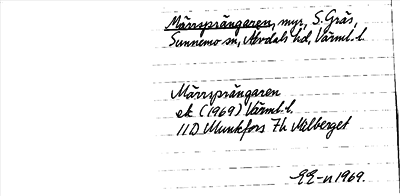 Märrsprängaren, myr, S. Gräs,
Sunnemo sn, Älvdals hd, Värml. l.
Märrsprängaren
ek (1969) Värml. l.
11D Munkfors 7h Målberget
EE-n 1969.